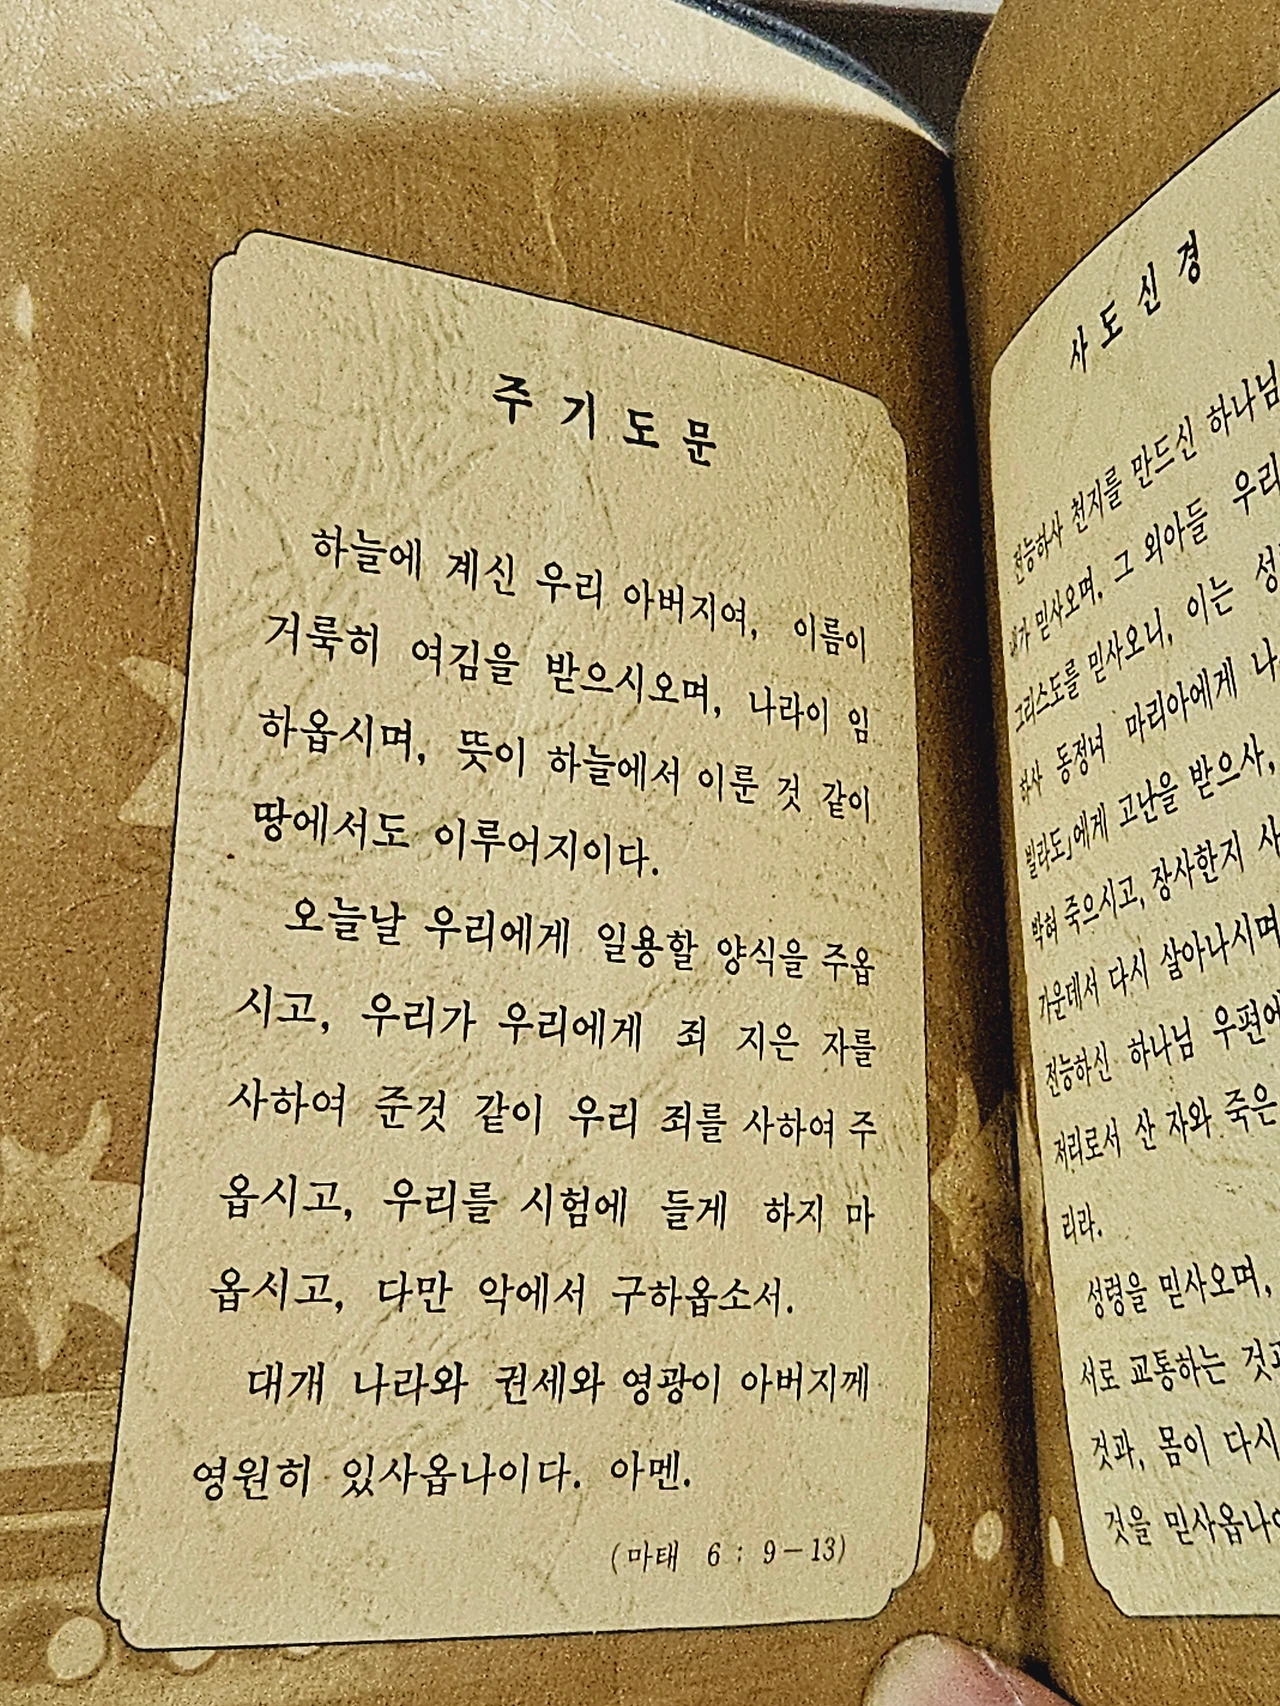 주기도문
하늘에 계신 우리 아버지여, 이름이
거룩히 여김을 받으시오며, 나라이 임
하옵시며, 뜻이 하늘에서 이룬 것 같이
땅에서도 이루어지이다.
오늘날 우리에게 일용할 양식을 주옵
시고, 우리가 우리에게 죄 지은 자를
사하여 준것 같이 우리 죄를 사하여 주
옵시고, 우리를 시험에 들게 하지 마
옵시고, 다만 악에서 구하옵소서.
대개 나라와 권세와 영광이 아버지께
영원히 있사옵나이다. 아멘.
(마태 6 : 9-13)
사도신경
전능하사 천지를 만드신 하나님
내가 믿사오며, 그 외아들 우리
그리스도를 믿사오니, 이는 성
하사 동정녀 마리아에게 나
빌라도」에게 고난을 받으사,
박혀 죽으시고, 장사한지 사
가운데서 다시 살아나시며
전능하신 하나님 우편에
저리로서 산 자와 죽은
리라.
성령을 믿사오며,
서로 교통하는 것과
것과, 몸이 다시
것을 믿사옵나